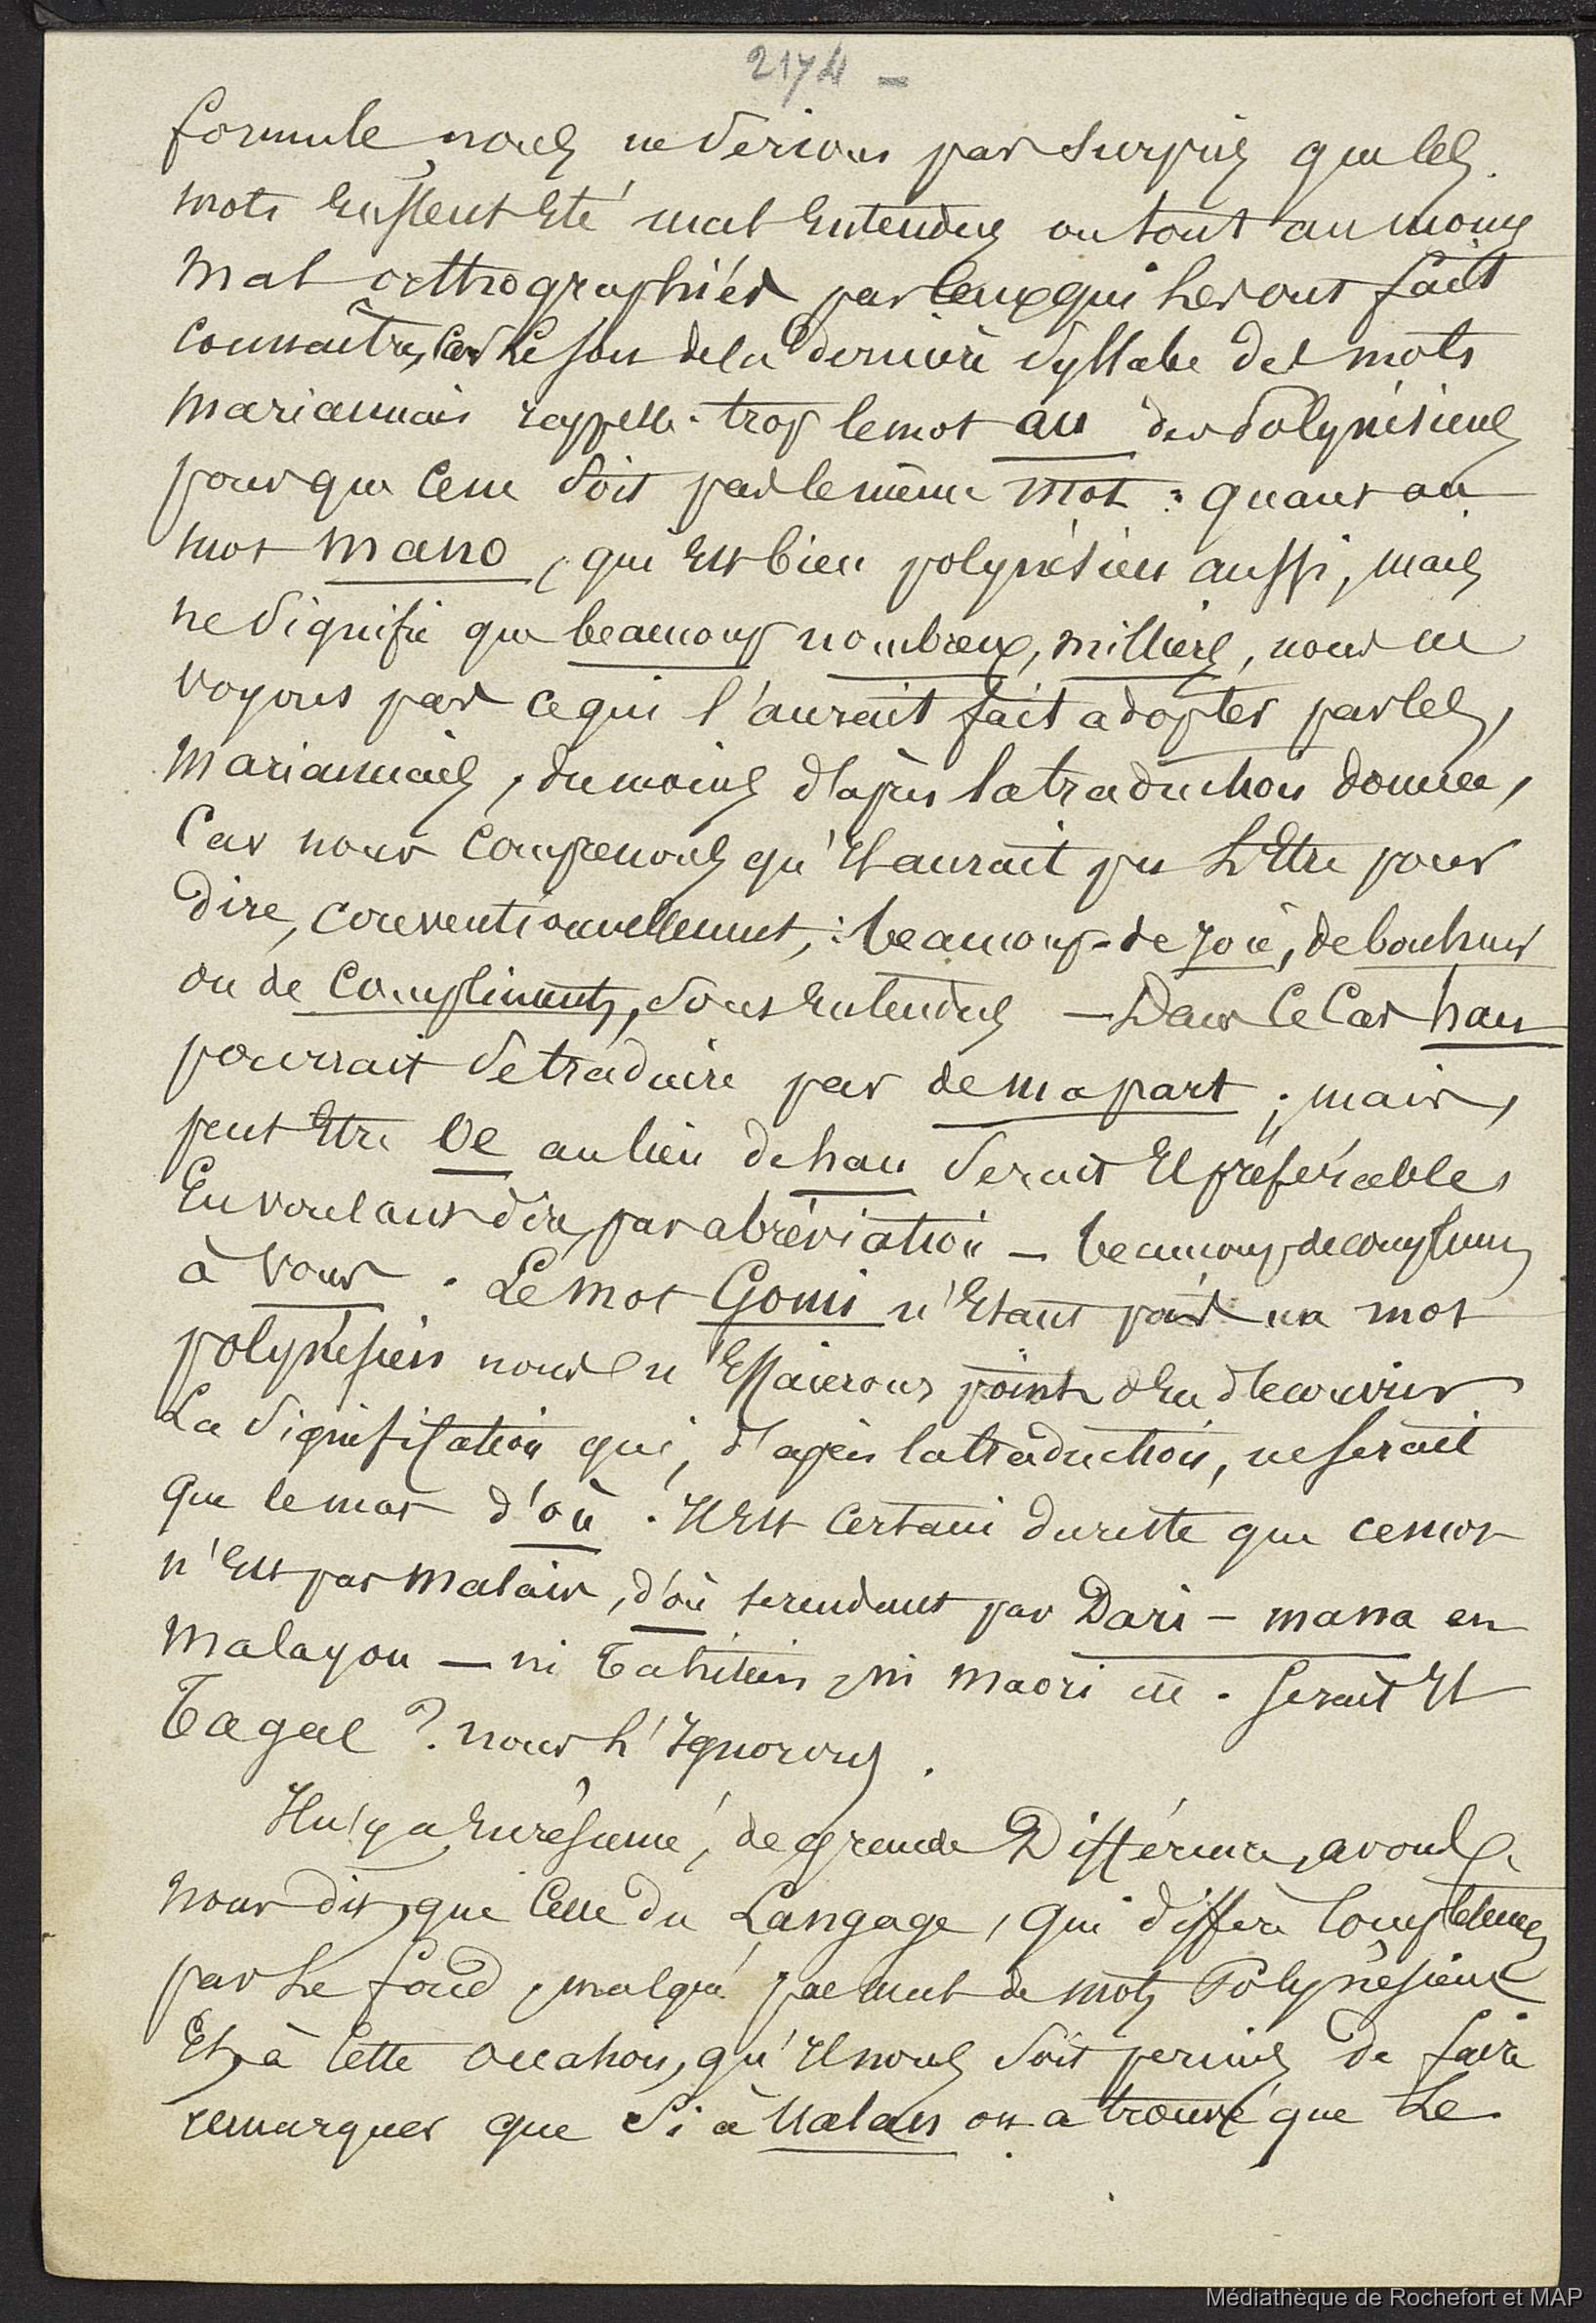 2174 -
formule nous ne serions pas surpris que les
mots eussent été mal entendus ou tout au moins
mal orthographiés par ceux qui les ont fait
connaître, car le son de la dernière syllabe des mots
mariannais rappelle trop le mot au des Polynésiens
pour que ce ne soit pas le même mot : quant au
mot mano, qui est bien polynésien aussi, mais
ne signifie que beaucoup nombreux, milliers, nous ne
voyons pas ce qui l'aurait fait adopter par les,
Mariannais, du moins d'après la traduction donnée,
Car nous comprenons qu'il aurait pu l'être pour
dire, conventionnellement, : beaucoup de joie, de bonheur
ou de compliments, sous entendus — Dans ce cas hau
pourrait se traduire par de ma part ; mais,
peut être oe au lieu de hau serait il préférable,
En voulant dire par abréviation — beaucoup de complimens
à vous. Le mot Goni n'étant pas un mot
polynésien nous n'essaierons point d'en découvrir
La signification qui, d'après la traduction, ne serait
que le mot d'où. Il est certain du reste que ce mot
n'est pas malais, d'où se rendant par Dari - mana en
malayou — ni Tahitien, ni maori &&. serait il
Tagal ? nous l'ignorons.
Il n'y a en résumé, de grande Différence, avons
nous dit, que celle du Langage, qui diffère complètement
par le fond, malgré pas mal de mots Polynésiens
Et, à cette occasion, qu'il nous soit permis de faire
remarquer que si à Ualan on a trouvé que le
Médiathèque de Rochefort et MAP